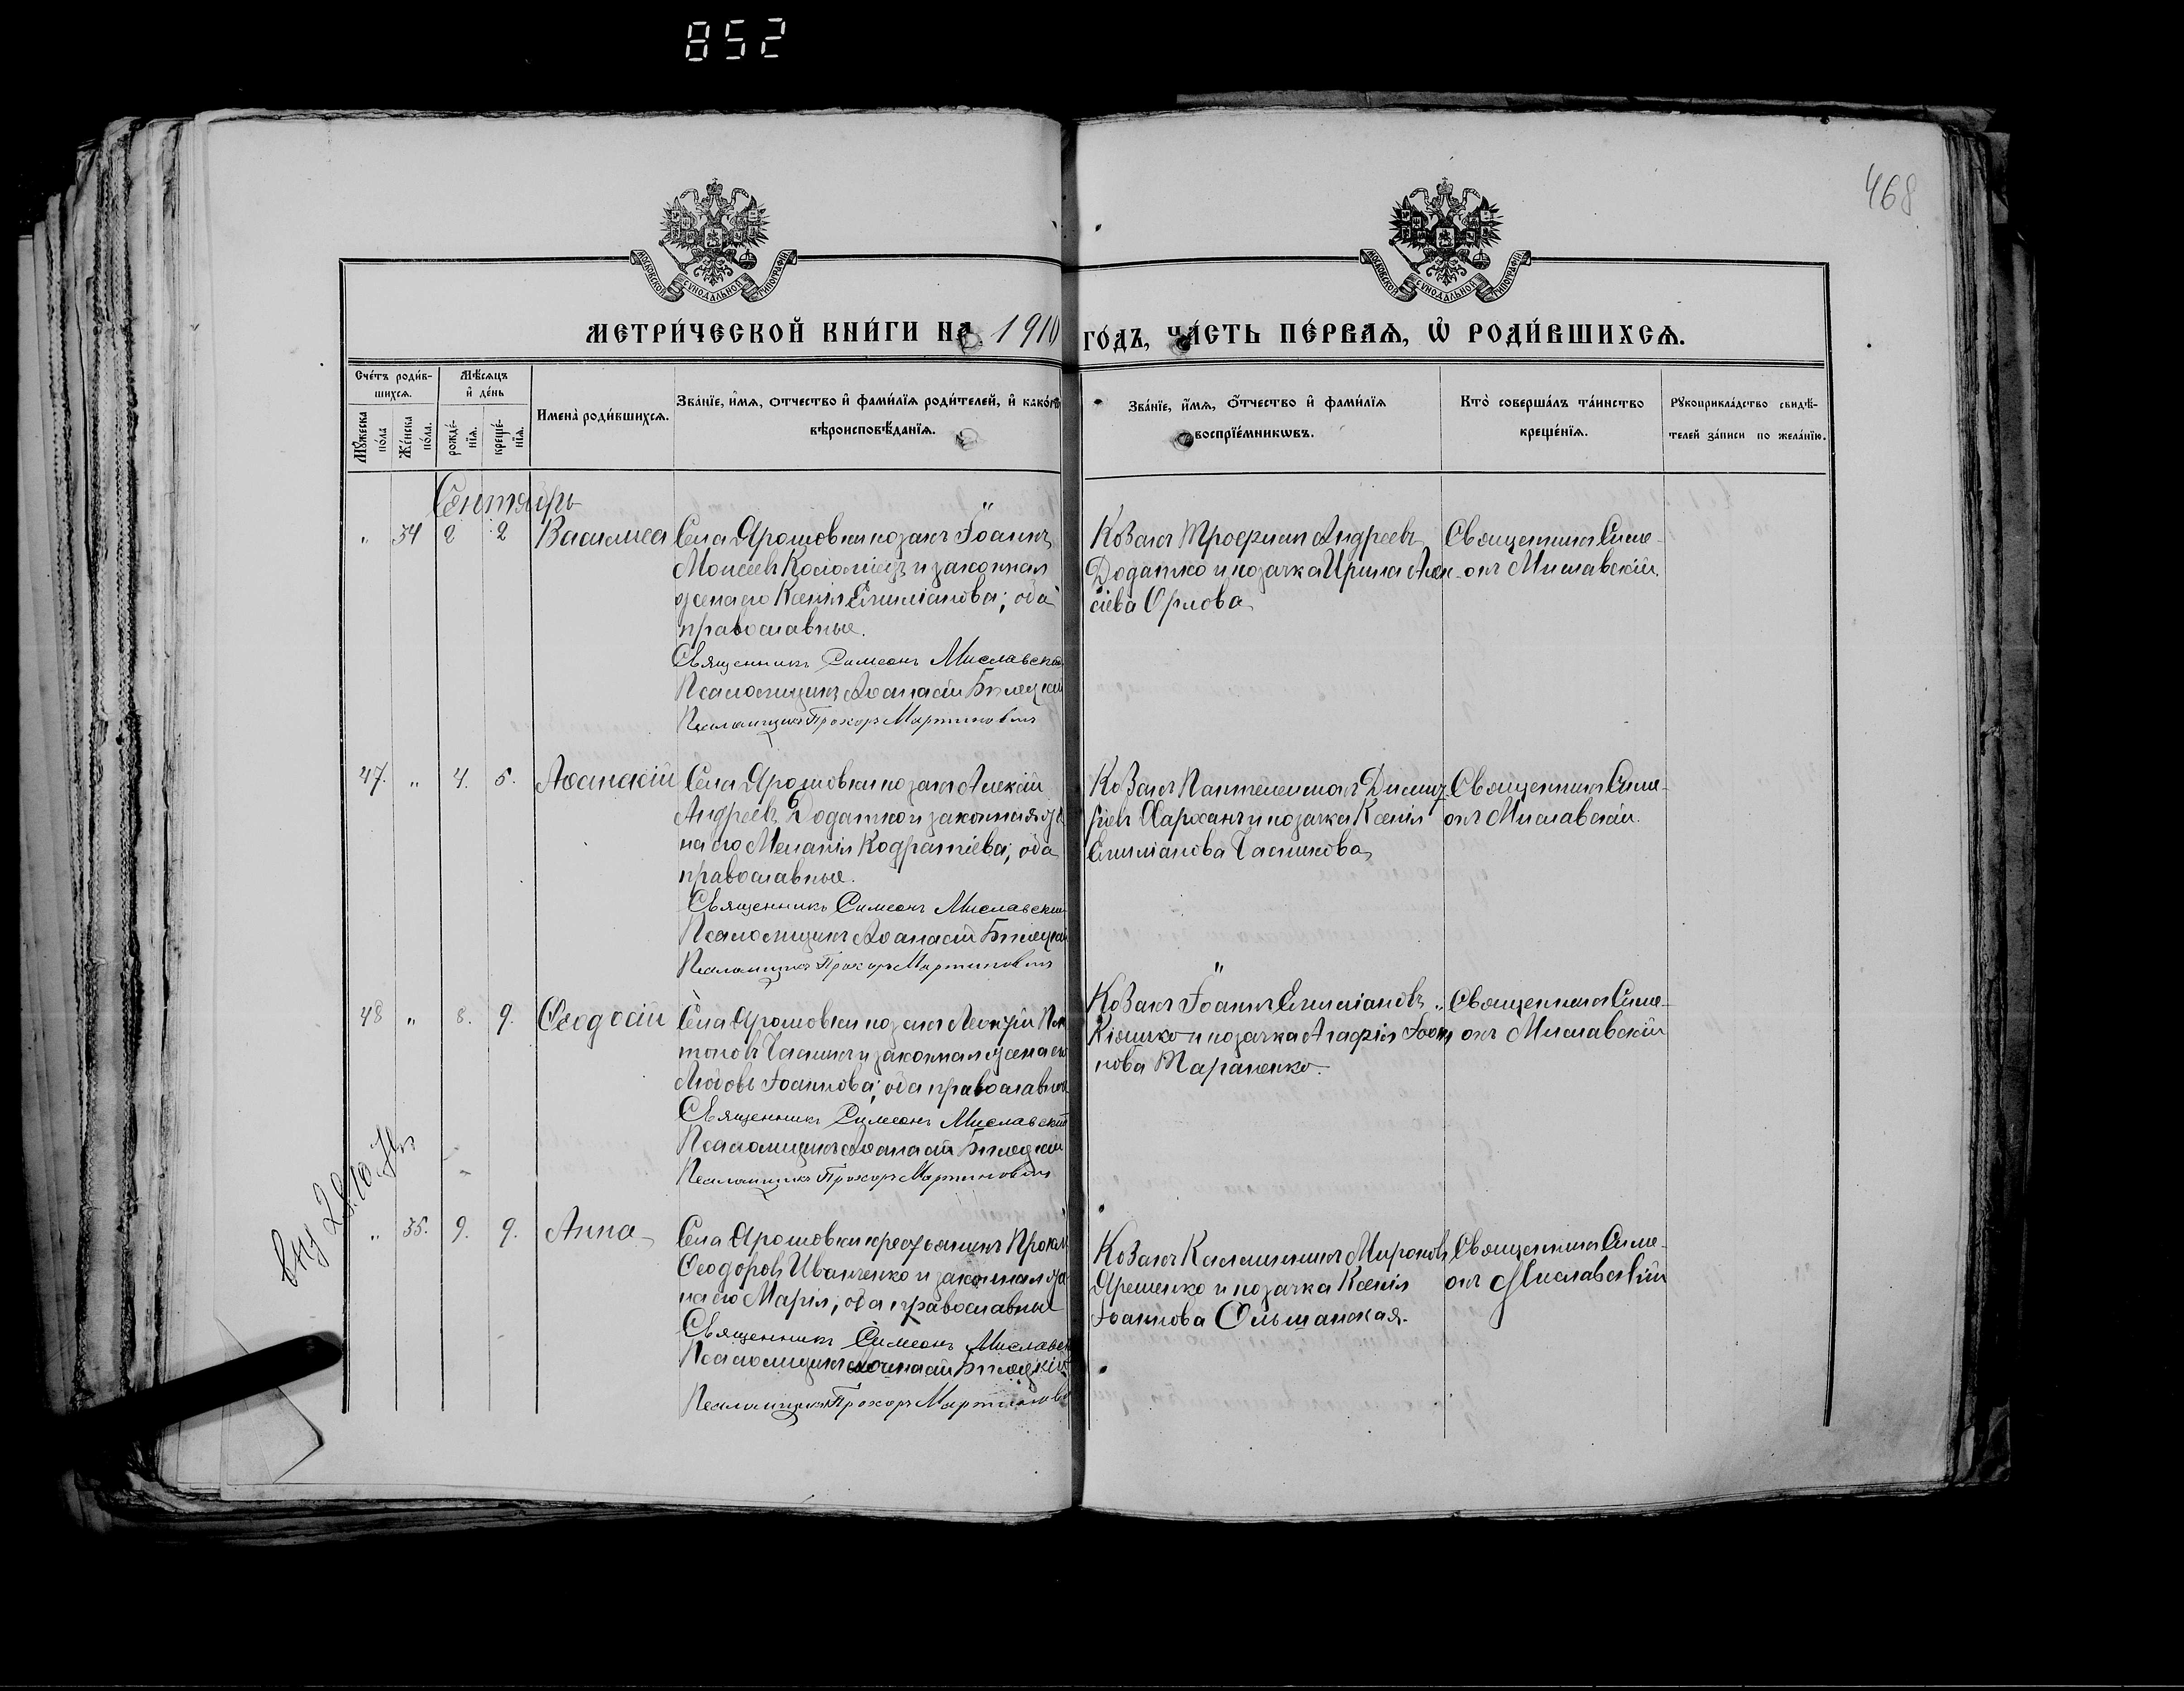 852
468
МОСКОВСКОЙ СУНОДАЛЬНОЙ ТИПОГРАФІИ
МОСКОВСКОЙ СУНОДАЛЬНОЙ ТИПОГРАФІИ
МЕТРИ́ЧЕСКОЙ КНИ́ГИ НА 1910 ГО́ДЪ, ЧА́СТЬ ПЕ́РВАѦ, Ѡ҆ РОДИ́ВШИХСѦ.
Сче́тъ роди́в-
шихсѧ.
Мꙋ́жеска по́ла
Же́нска по́ла.
Мѣ́сѧцъ
и҆ де́нь
рожде́-
нїѧ.
креще́-
нїѧ.
Имена̀ роди́вшихсѧ.
Зва́нїе, и҆́мѧ, ѻ҆́тчество и҆ фами́лїѧ роди́телей, и҆ како́гѡ
вѣроисповѣ́данїѧ.
Зва́нїе, и҆́мѧ, ѻ҆́тчество и҆ фами́лїѧ
воспрїе́мникѡвъ.
Кто̀ соверша́лъ та́инство
креще́нїѧ.
Рꙋкоприкла́дство свидѣ́-
телей за́писи по жела́нїю.
Сентябрь
" 34 2 2 Василиса
Села Ярошовки козакъ Іоаннъ
Моисеевъ Коломіецъ и законная
жена его Ксенія Емиліанова; оба
православные.
Священникъ Симеонъ Миславскій
Псаломщикъ Аѳанасій Билецкій
Псаломщикъ Прохоръ Мартиновичъ
Козакъ Трофимъ Андреевъ
Додатко и козачка Ирина Алек-
сіева Орлова
Священникъ Симе-
онъ Миславскій.
47. " 4. 5. Аѳанасій
Села Ярошовки козакъ Алексій
Андреевъ Додатко и законная же
на его Меланія Кодратіева; оба
православные.
Священникъ Симеонъ Миславскій
Псаломщикъ Аѳанасій Билецкій
Псаломщикъ Прохоръ Мартиновичъ
Козакъ Пантелеимонъ Димит-
ріевъ и козачка Ксенія
Емиліанова
Священникъ Симе-
онъ Миславскій.
48 " 8. 9. Ѳеодосій
Села Ярошовки козакъ
и законная жена его
Любовь Іоаннова; оба православные
Священникъ Симеонъ Миславскій
Псаломщикъ Аѳанасій Билецкій
Псаломщикъ Прохоръ Мартиновичъ
Козакъ Іоаннъ Емиліановъ
Клюшко и козачка Агафія Іоан
нова Тараненко.
Священникъ Симе-
онъ Миславскій
" 35. 9. 9. Анна
Села Ярошовки крестьянинъ
Ѳеодоровъ Иванченко и законная же
на его Марія; оба православные
Священникъ Симеонъ Миславскій
Псаломщикъ Аѳанасій Билецкій
Псаломщикъ Прохоръ Мартинович
Козакъ Каллиникъ Мироновъ
Ярешенко и козачка Ксенія
Іоаннова Ольшанская.
Священникъ Симе-
онъ Миславскій